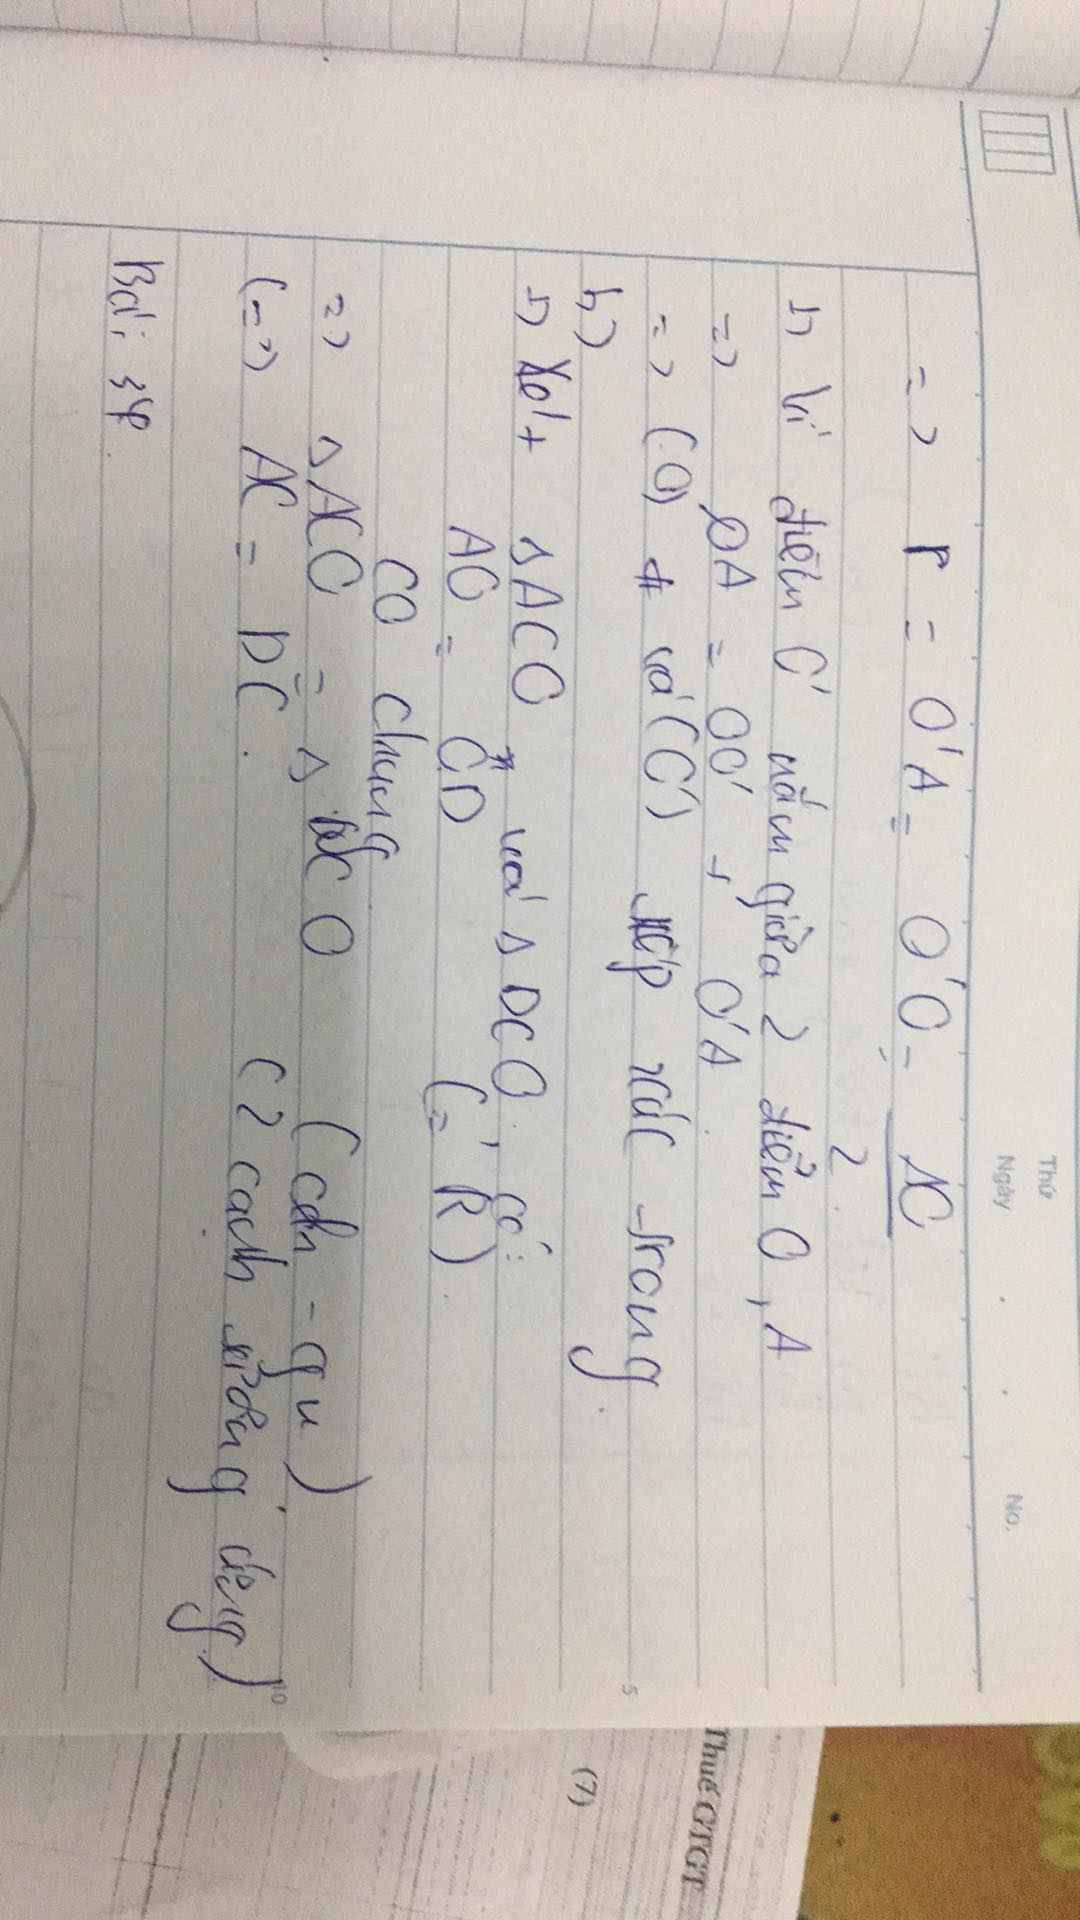 Thứ
Ngày
No.
=> r = O'A = O'O = AC
2
+) Vì điểm O' nằm giữa 2 điểm O, A
=> OA = OO' + O'A
=> (O) và (O') tiếp xúc trong
b)
+) Xét ΔACO và ΔDCO có:
AO = OD (= R)
CO chung
=> ΔACO = ΔDCO (ch - gn)
(=>) AC = DC. (2 cạnh tương ứng)
Bài 34
5
10
(7)
Thuế GTGT